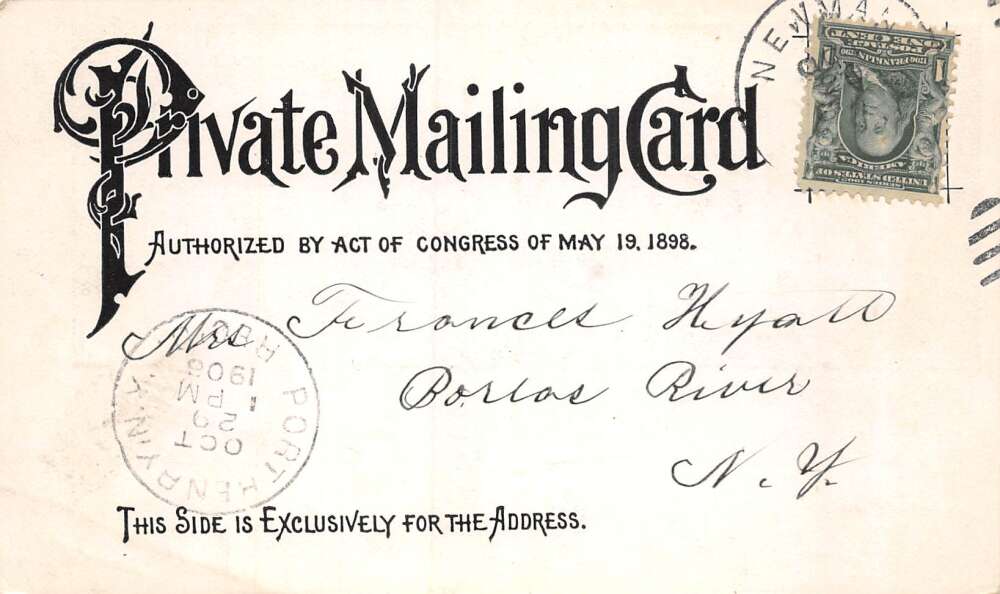 Private Mailing Card
AUTHORIZED BY ACT OF CONGRESS OF MAY 19, 1898.
NEWMAN
ONE CENT
POSTAGE
1706 FRANKLIN 1790
1 1
AMERICA
UNITED STATES OF
SERIES 1902
Mrs Frances Hyatt
Boreas River
N.Y.
PORT HENRY N.Y.
REC'D
OCT
29
1 PM
1906
THIS SIDE IS EXCLUSIVELY FOR THE ADDRESS.